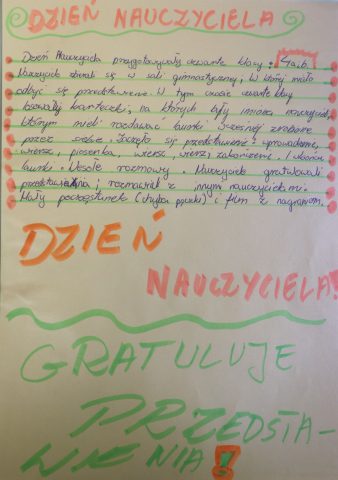 DZIEŃ NAUCZYCIELA
Dzień Nauczyciela przygotowywały czwarte klasy: 4a,b
Nauczyciele zbierali się w sali gimnastycznej, w której miało
odbyć się przedstawienie. W tym czasie czwarte klasy
losowały karteczki, na których były imiona nauczycieli,
którym mieli rozdawać laurki wcześniej zrobione
przez siebie. Zaczęło się przedstawienie: wprowadzenie,
wiersz, piosenka, wiersz, wiersz, zakończenie. I wtedy
laurki. Wesołe rozmowy. Nauczyciele gratulowali
przedstawienia, i rozmawiali z innymi nauczycielami.
Mały poczęstunek (chyba pączki) i film z nagraniem.
DZIEŃ
NAUCZYCIELA!
GRATULUJE
PRZEDSTA-
WIENIA!